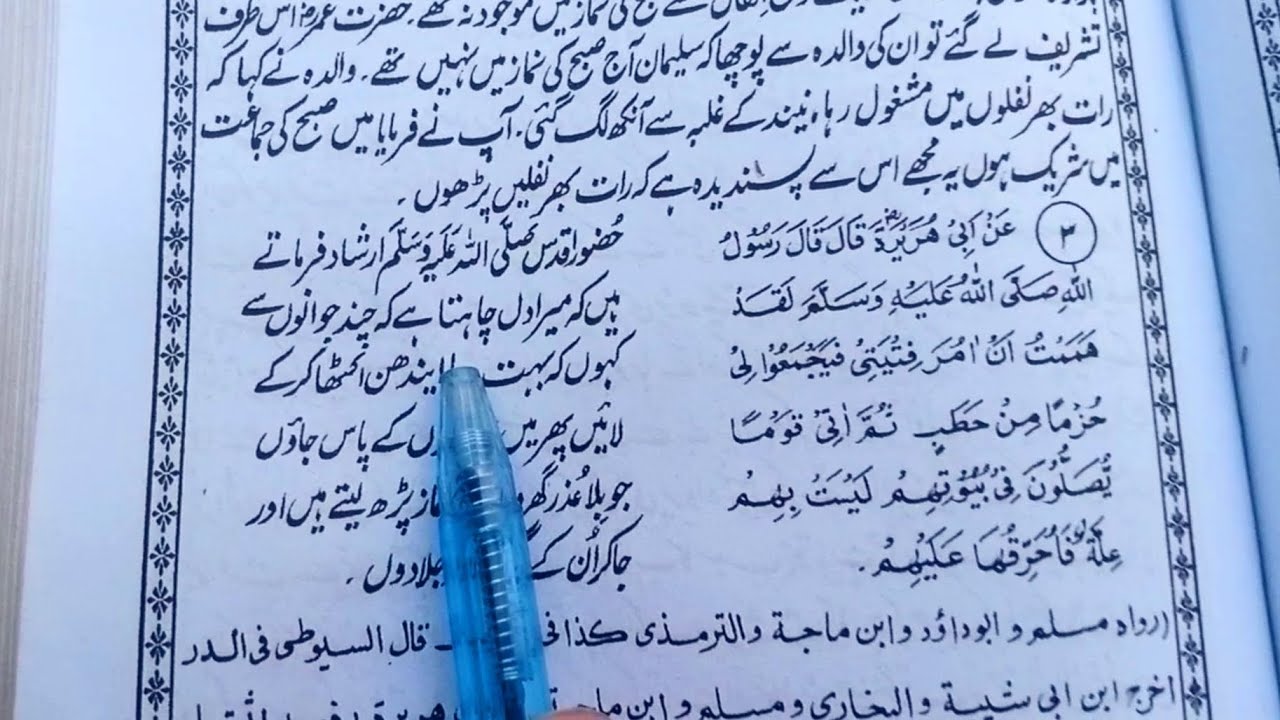 موجود نہ تھے۔ حضرت عمرؓ اس طرف
تشریف لے گئے تو ان کی والدہ سے پوچھا کہ سلیمان آج صبح کی نماز میں نہیں تھے۔ والدہ نے کہا کہ
رات بھر نفلوں میں مشغول رہا، نیند کے غلبہ سے آنکھ لگ گئی۔ آپ نے فرمایا میں صبح کی جماعت
میں شریک ہوں یہ مجھے اس سے پسندیدہ ہے کہ رات بھر نفلیں پڑھوں۔
۳ عَنْ اَبِیْ هُرَیْرَةَؓ قَالَ قَالَ رَسُوْلُ
اللهِ صَلَّی اللهُ عَلَیْهِ وَسَلَّمَ لَقَدْ
هَمَمْتُ اَنْ اٰمُرَ فِتْیَتِیْ فَیَجْمَعُوْا لِیْ
حُزَمًا مِنْ حَطَبٍ ثُمَّ اٰتِیْ قَوْمًا
یُّصَلُّوْنَ فِیْ بُیُوْتِهِمْ لَیْسَتْ بِهِمْ
عِلَّةٌ فَاُحَرِّقُهَا عَلَیْهِمْ۔
حضورِ اقدس صلَّی اللہ علَیہ وَسلَّم ارشاد فرماتے
ہیں کہ میرا دل چاہتا ہے کہ چند جوانوں سے
کہوں کہ بہت ایندھن اکٹھا کر کے
لائیں پھر میں کے پاس جاؤں
جو بلا عُذر پڑھ لیتے ہیں اور
جا کر اُن کے جلا دوں۔
(رواه مسلم و ابوداؤد و ابن ماجة والترمذی کذا قال السیوطی فی الدر
اخرج ابن ابی شیبة و البخاری و مسلم و ابن